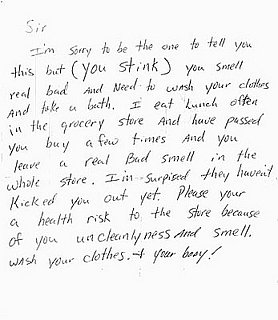 Sir
I'm sorry to be the one to tell you
this but (you stink) you smell
real bad And Need to wash your clothes
And take a bath. I eat Lunch often
in the grocery store And have passed
you buy a few times And you
leave a real Bad smell in the
whole store. I'm surprised they haven't
Kicked you out yet. Please your
a health risk to the store because
of you uncleanlyness And smell.
wash your clothes. + your body!